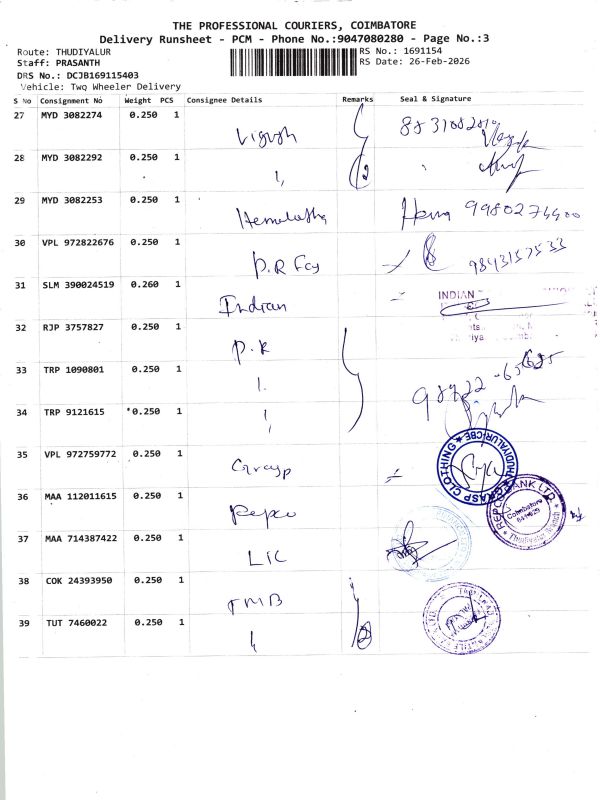 THE PROFESSIONAL COURIERS, COIMBATORE
Delivery Runsheet - PCM - Phone No.:9047080280 - Page No.:3
Route: THUDIYALUR
RS No.: 1691154
Staff: PRASANTH
RS Date: 26-Feb-2026
DRS No.: DCJB169115403
Vehicle: Two Wheeler Delivery
S No Consignment No Weight PCS Consignee Details Remarks Seal & Signature
27 MYD 3082274 0.250 1
28 MYD 3082292 0.250 1
29 MYD 3082253 0.250 1 Hemalatha Hema 9980274400
30 VPL 972822676 0.250 1 P.R Fcy 9843157533
31 SLM 390024519 0.260 1 Indian INDIAN
32 RJP 3757827 0.250 1 P.R
33 TRP 1090801 0.250 1
34 TRP 9121615 0.250 1
35 VPL 972759772 0.250 1 THUDIYALUR/CBE KASP CLOTHING
36 MAA 112011615 0.250 1 Repco REPCO BANK LTD. Coimbatore Thudiyalur Branch
37 MAA 714387422 0.250 1 LIC
38 COK 24393950 0.250 1 TMB
39 TUT 7460022 0.250 1